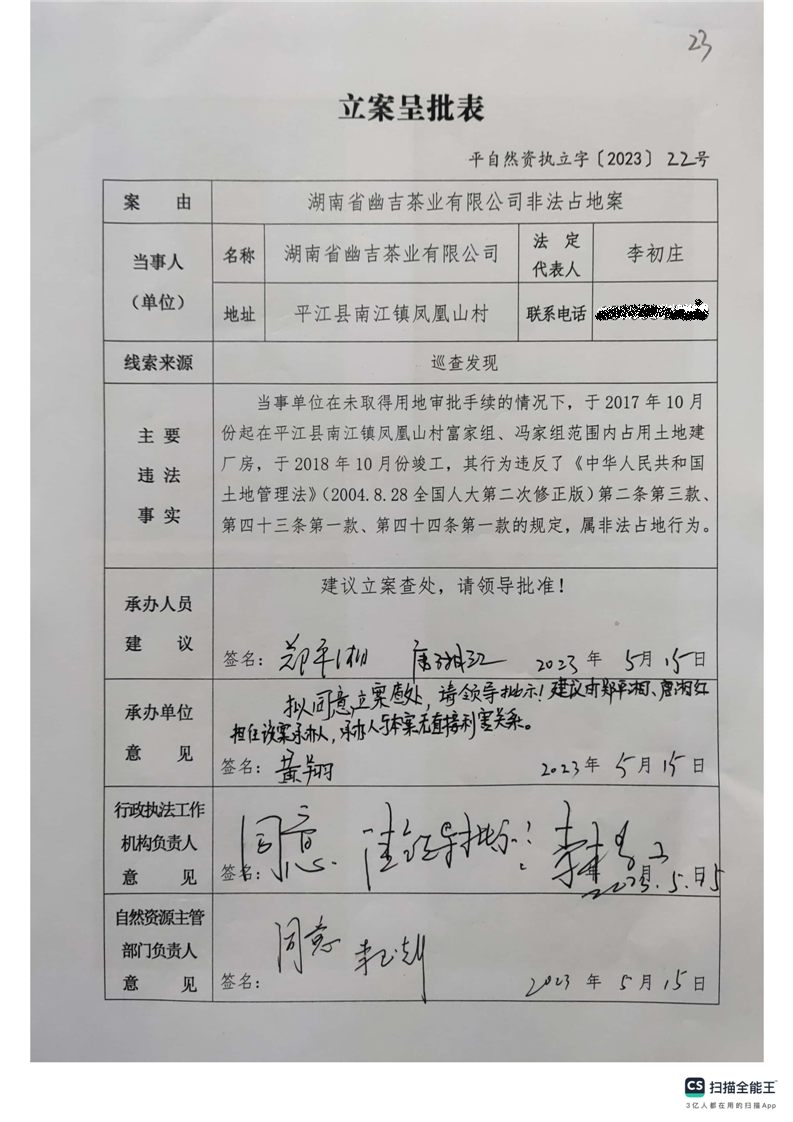 23
立案呈批表
平自然资执立字〔2023〕22号
案由
湖南省幽吉茶业有限公司非法占地案
当事人
（单位）
名称
湖南省幽吉茶业有限公司
法定
代表人
李初庄
地址
平江县南江镇凤凰山村
联系电话
线索来源
巡查发现
主要
违法
事实
当事单位在未取得用地审批手续的情况下，于2017年10月
份起在平江县南江镇凤凰山村富家组、冯家组范围内占用土地建
厂房，于2018年10月份竣工，其行为违反了《中华人民共和国
土地管理法》（2004.8.28全国人大第二次修正版）第二条第三款、
第四十三条第一款、第四十四条第一款的规定，属非法占地行为。
承办人员
建议
建议立案查处，请领导批准！
签名：郑平湘 唐湘红 2023年5月15日
承办单位
意见
拟同意立案查处，请领导批示！建议由郑平湘、唐湘红
担任该案承办人，承办人与本案无直接利害关系。
签名：黄翔 2023年5月15日
行政执法工作
机构负责人
意见
同意 请领导批示！
签名： 月 日
2023.5.15
自然资源主管
部门负责人
意见
同意
签名： 2023年5月15日
CS 扫描全能王
3亿人都在用的扫描App